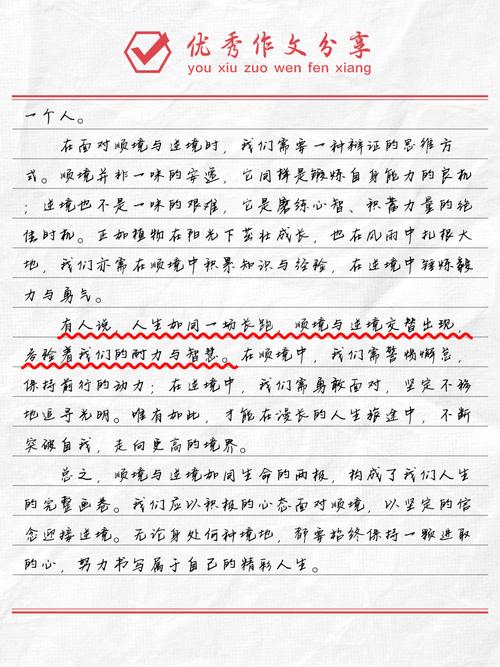 优秀作文分享
you xiu zuo wen fen xiang
一个人。
在面对顺境与逆境时，我们需要一种辩证的思维方
式。顺境并非一味的安逸，它同样是锻炼自身能力的良机
；逆境也不是一味的艰难，它是磨练心智、积蓄力量的绝
佳时机。正如植物在阳光下茁壮成长，也在风雨中扎根大
地，我们亦需在顺境中积累知识与经验，在逆境中锤炼毅
力与勇气。
有人说，人生如同一场长跑，顺境与逆境交替出现，
考验着我们的耐力与智慧。在顺境中，我们需警惕懈怠，
保持前行的动力；在逆境中，我们需勇敢面对，坚定不移
地追寻光明。唯有如此，才能在漫长的人生旅途中，不断
突破自我，走向更高的境界。
总之，顺境与逆境如同生命的两极，构成了我们人生
的完整画卷。我们应以积极的心态面对顺境，以坚定的信
念迎接逆境。无论身处何种境地，都要始终保持一颗进取
的心，努力书写属于自己的精彩人生。